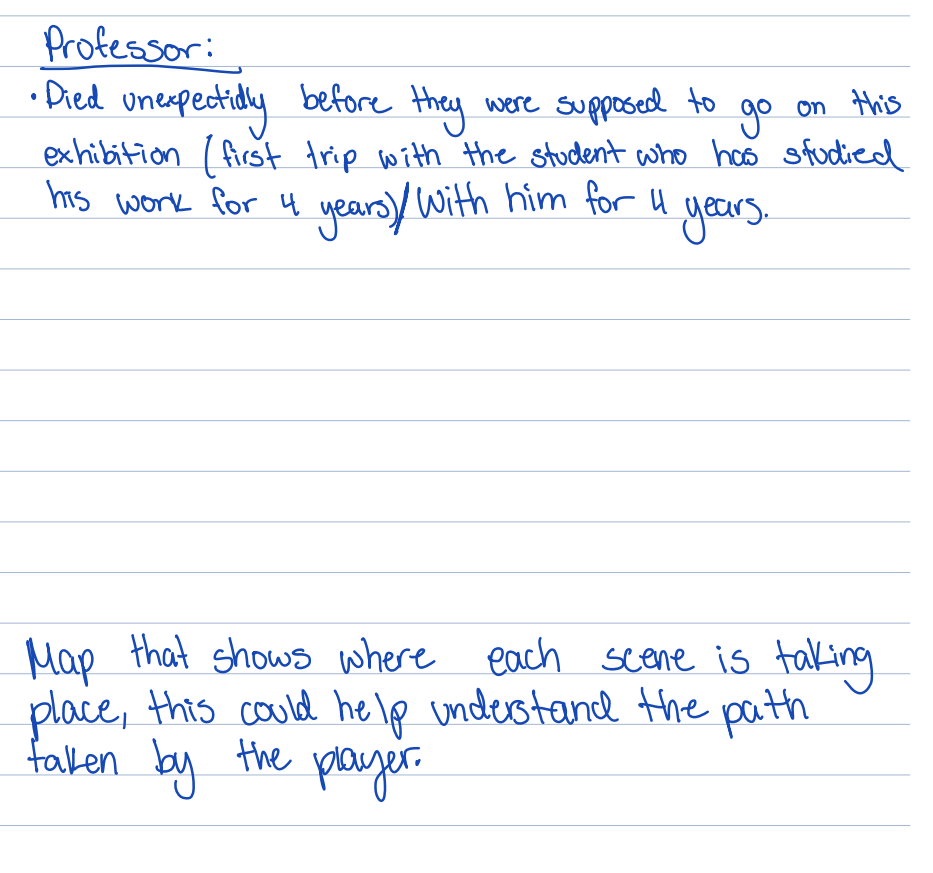 Professor:
• Died unexpectidly before they were supposed to go on this
exhibition (first trip with the student who has studied
his work for 4 years)/With him for 4 years.
Map that shows where each scene is taking
place, this could help understand the path
taken by the player.